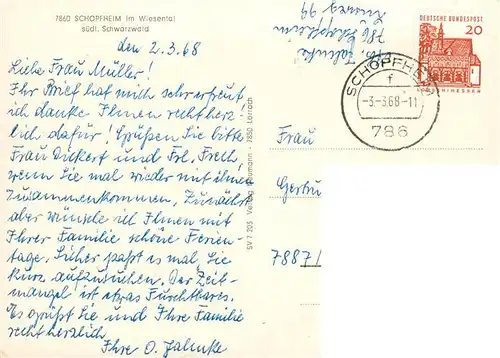 7860 SCHOPFHEIM im Wiesental
südl. Schwarzwald
den 2.3.68
Liebe Frau Müller!
Ihr Brief hat mich sehr erfreut,
ich danke Ihnen recht herz-
lich dafür! Grüßen Sie bitte
Frau Dückert und Frl. Frech,
wenn Sie mal wieder mit ihnen
zusammenkommen. Zunächst
aber wünsche ich Ihnen mit
Ihrer Familie schöne Ferien-
tage. Sicher paßt es mal, Sie
kurz aufzusuchen. Der Zeit-
mangel ist etwas Furchtbares.
Es grüßt Sie und Ihre Familie
recht herzlich
Ihre O. Jahnke
SV 7 205 Verlag Baumann · 7850 Lörrach
Jahnke
786 Schopfheim
94
DEUTSCHE BUNDESPOST
20
LORSCH/HESSEN
SCHOPFHEIM
f
-3.-3.68-11
786
Frau
Gertru
7887/